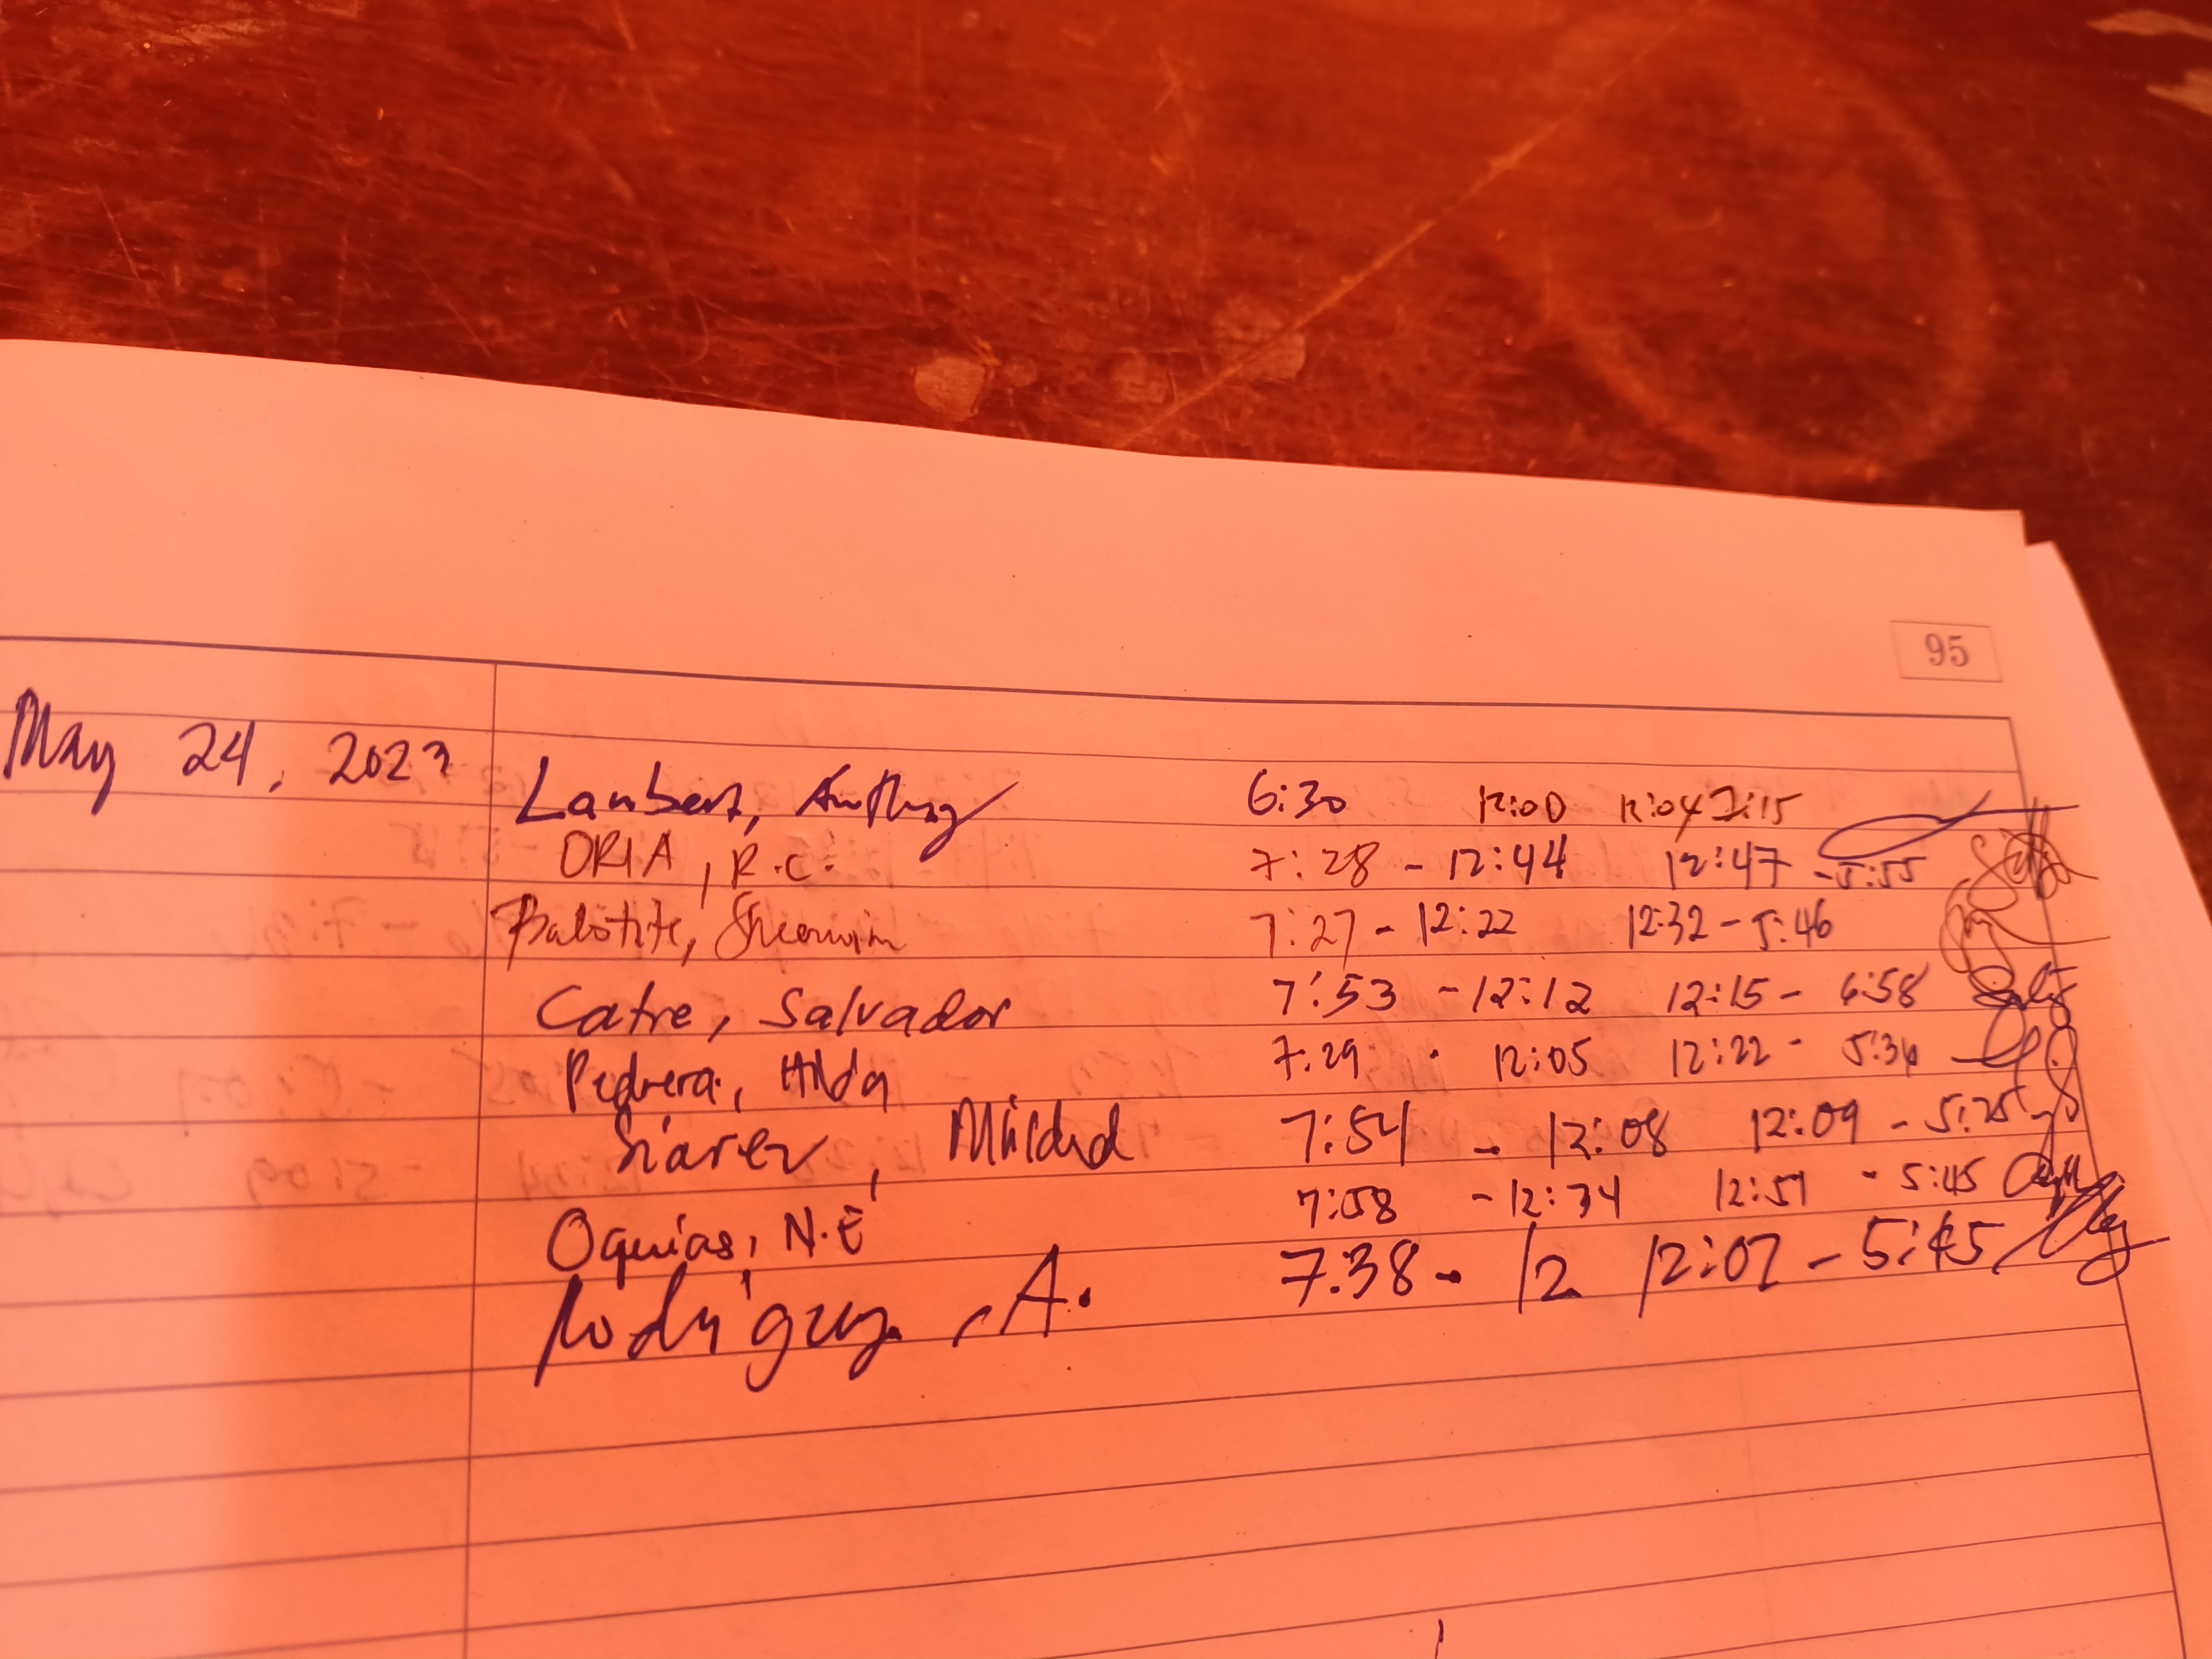 95
May 24, 2023
Lambert, Anthony 6:30 12:00 12:04 7:15
ORIA, R.C. 7:28 - 12:44 12:47 - 5:55
Babotite, Sherwin 7:27 - 12:22 12:32 - 5:46
Catre, Salvador 7:53 - 12:12 12:15 - 6:58
Pedrera, Hilda 7:29 12:05 12:22 - 5:34
Suarez, Mildred 7:54 - 12:08 12:09 - 5:25
Oquias, N.E 7:58 - 12:34 12:51 - 5:45
Rodriguez, A. 7.38 - 12 12:02 - 5:45